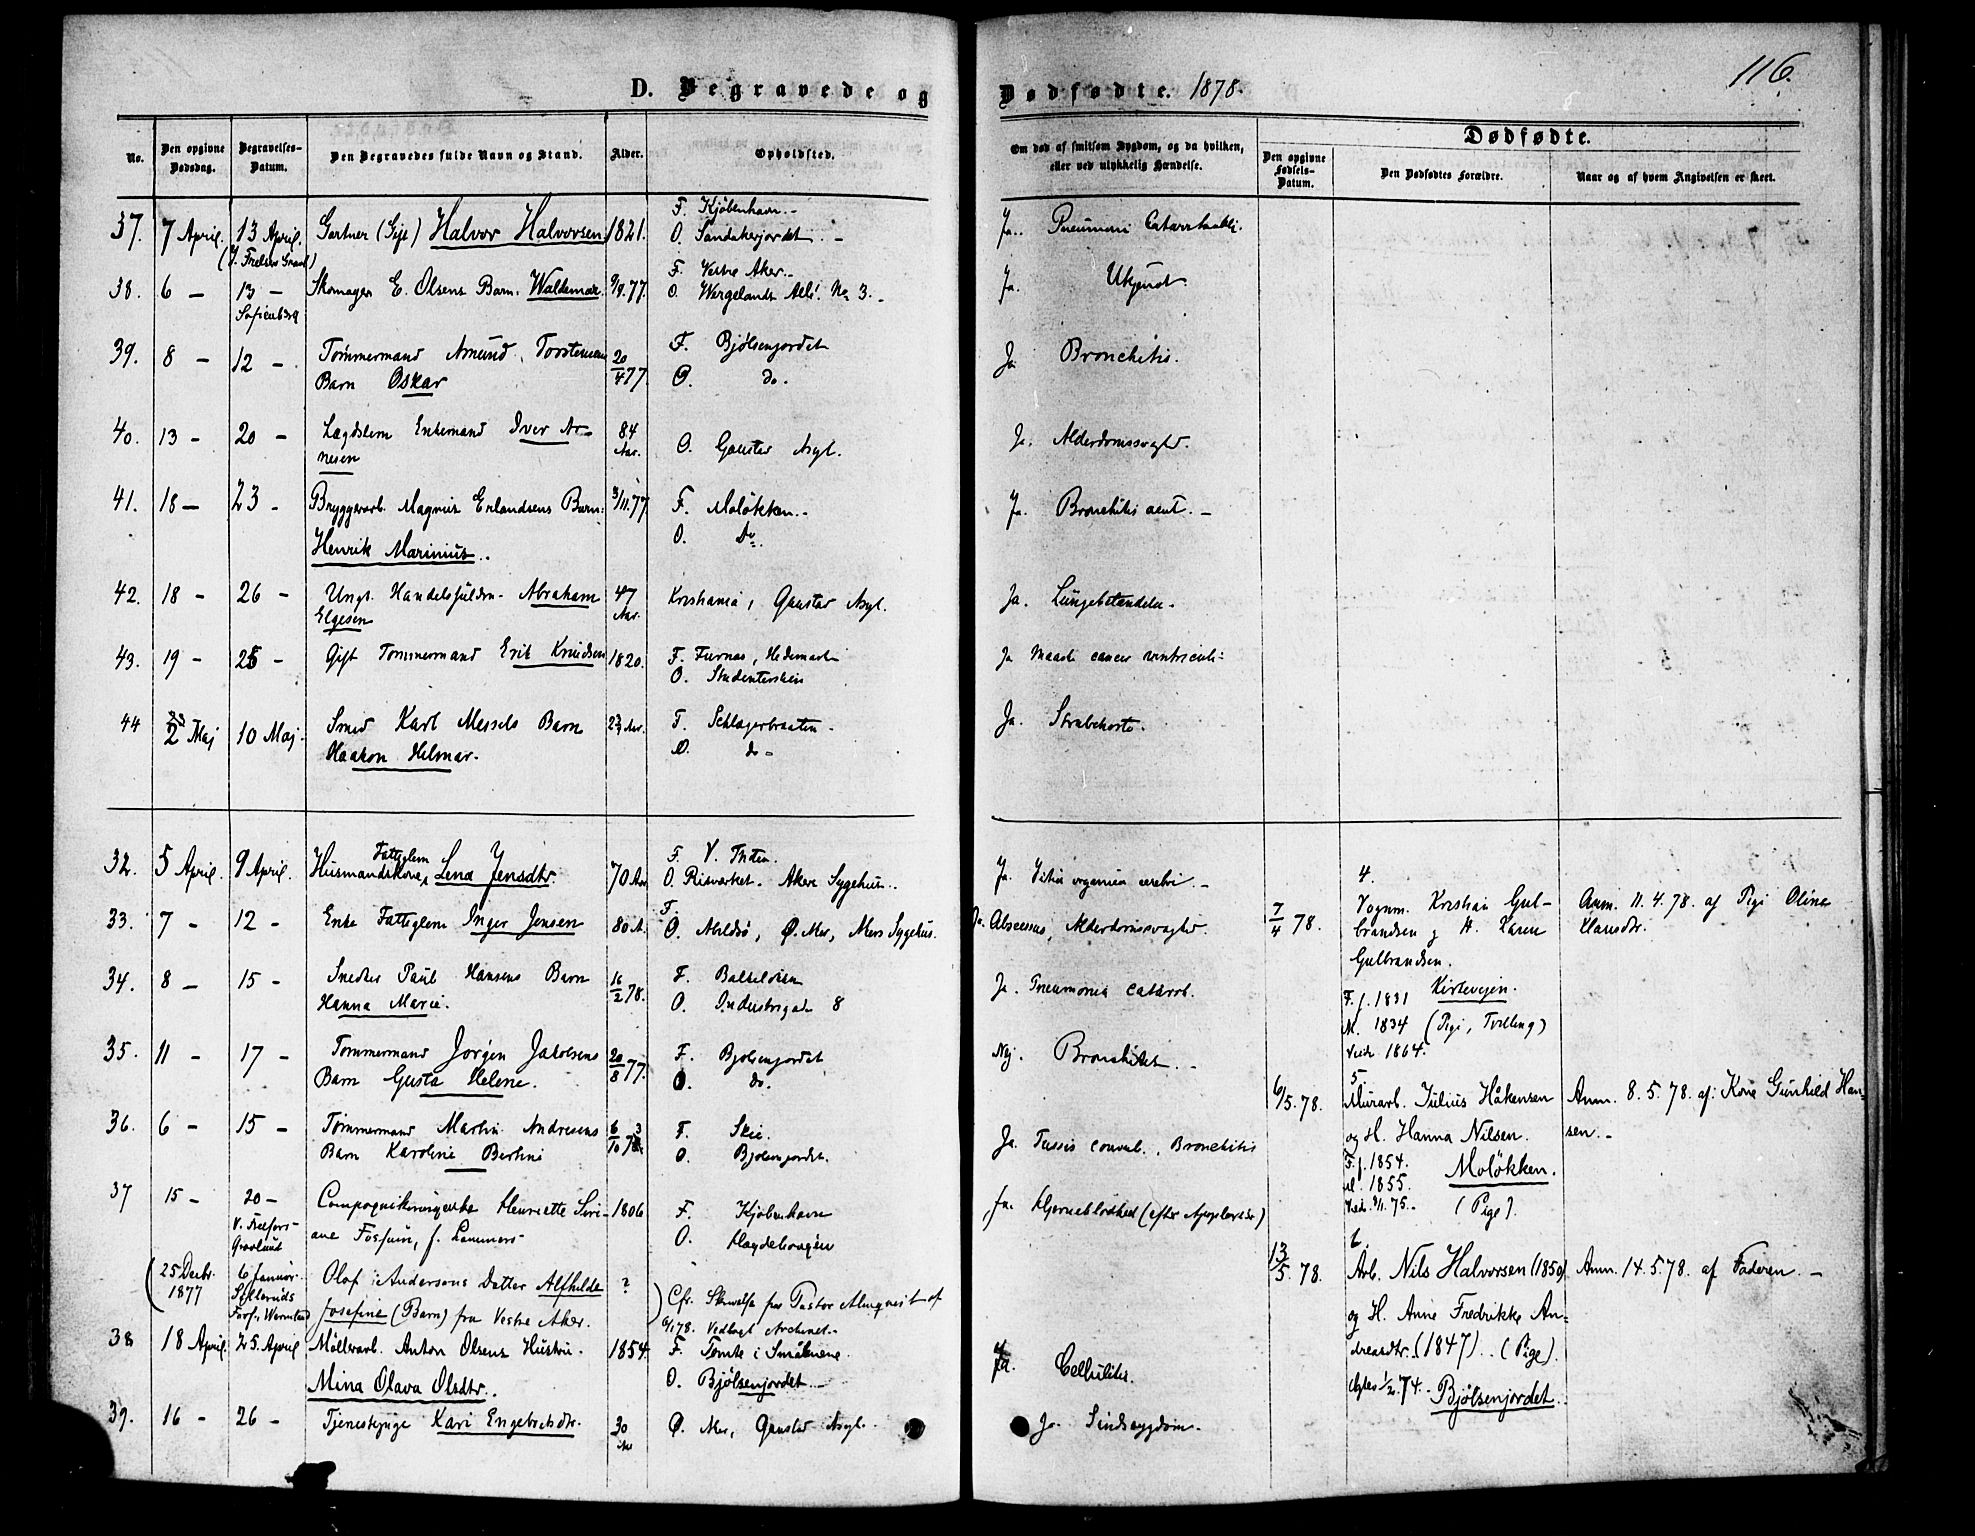 116.
D. Begravede og Dødfødte. 1878.
No.
Den opgivne Dødsdag.
Begravelses-Datum.
Den Begravedes fulde Navn og Stand.
Alder.
Opholdssted.
Om død af smitsom Sygdom, og da hvilken, eller ved ulykkelig Hændelse.
Dødfødte.
Den opgivne Fødsels-Datum.
Den Dødfødtes Forældre.
Naar og af hvem Angivelsen er skeet.
37. 7 April. 13 April. Gartner (Gift) Halvor Halvorsen 1821. F. Kjøbenhavn. Ja. Pneumoni
(V. Frelsers Gravl.) O. Sandakerjordet.
38. 6 – 13 – Skomager E. Olsens Barn Waldemar 9/9.77. F. Vestre Aker. Ja. Ukjendt
Sofienberg O. Wergelands Allé No 3.
39. 8 – 12 – Tømmermand Amund Torstensens 20/4 77. F. Bjølsenjordet Ja Bronchitis.
Barn Oskar O. do.
40. 13 – 20 – Lægdslem Enkemand Iver Ar- 84 Aar. O. Gaustad Asyl. Ja. Alderdomssvaghed.
nesen
41. 18 – 23 – Bryggerarb. Magnus Erlandsens Barn 3/11.77 F. Moløkken. Ja. Bronchitis acut.
Henrik Marinius. O. Do.
42. 18 – 26 – Ungk. Handelsfuldm. Abraham 47 Aar. Kristiania, Gaustad Asyl. Ja. Lungebetændelse.
Elgesen
43. 19 – 25 – Gift Tømmermand Erik Knudsen 1820. F. Furnæs, Hedemarken Ja cancer ventriculi
O. Studenterskien
44 2 Maj 10 Maj. Smed Karl Messels Barn F. Schlagerbraaten Ja. Strubehoste.
Haakon Helmar. O. do
32. 5 April. 9 April. Husmandskone, Fattiglem Lena Jensdtr. 70 Aar F. V. Thoten. Ja. Vitia organica cerebri.
O. Risværket. Akers Sygehus.
33. 7 – 12 – Enke Fattiglem Inger Jensen 80 A. F. O. Ø. Aker, Akers Sygehus. Ja. Abscessus, Alderdomssvaghed.
34. 8 – 15 – Snedker Paul Hansens Barn 16/2 78. F. Bakkeløkken Ja. Pneumonia Catarrh.
Hanna Marie. O. Industrigaden 8
35. 11 – 17 – Tømmermand Jørgen Jakobsens 20/8 77. F. Bjølsenjordet Nej. Bronchitis.
Barn Gusta Helene. O. do.
36. 6 – 15 – Tømmermand Martin Andresens 6/10 F. Skie. Ja. Tussis convul., Bronchitis
Barn Karoline Bertine O. Bjølsenjordet.
37 15 – 20 – Compagnikirurgenke Henriette Seri- 1806 F. Kjøbenhavn Ja. Hjerneblødhed (efter Apoplexie)
V. Frelsers Gravlund ane Fossum, f. Lammers O. Hagdehougen
(25 Decbr. 1877 6 Januar Olof Andersons Datter Alfhilde ? ) Cfr. Skrivelse fra Pastor Almqvist af
Josefine (Barn) fra Vestre Aker. 6/1 78. Vedlagt Archivet.
38 18 April 25. April Møllerarb. Anton Olsens Hustru 1854. F. Tomte i Smålenene. Ja. Cellulites.
Mina Olava Olsdtr. O. Bjølsenjordet.
39. 16 – 26 – Tjenestepige Kari Engebretsdtr. 30 Aar Ø. Aker, Gaustad Asyl. Ja. Sindssygdom.
4.
7/4 78. Vognm. Kristian Gul- Anm. 11.4.78. af Pige Oline
brandsen g H. Karen Hansdtr.
Gulbrandsen.
F. f. 1831 Kirkevejen.
M. 1834 (Pige, Tvilling)
Viede 1864.
5
6/5.78. Murarb. Julius Håkensen Anm. 8.5.78. af Kone Gunhild Han-
og H. Hanna Nilsen. sen.
F. f. 1854. Moløkken.
M. 1855. (Pige).
6.
13/5.78. Arb. Nils Halvorsen (1850) Anm. 14.5.78. af Faderen.
og H. Anne Fredrikke An-
dreasdtr. (1847). (Pige).
74. Bjølsenjordet.